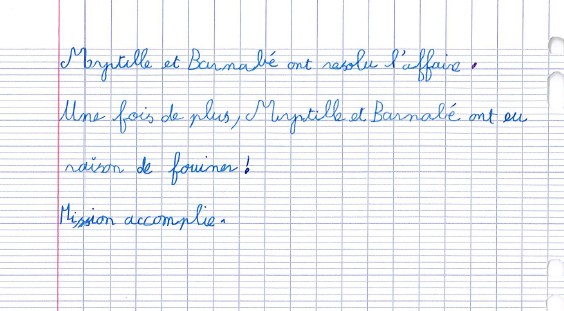 Myrtille et Barnabé ont resolu l'affaire.
Une fois de plus, Myrtille et Barnabé ont eu
raison de fouiner !
Mission accomplie.